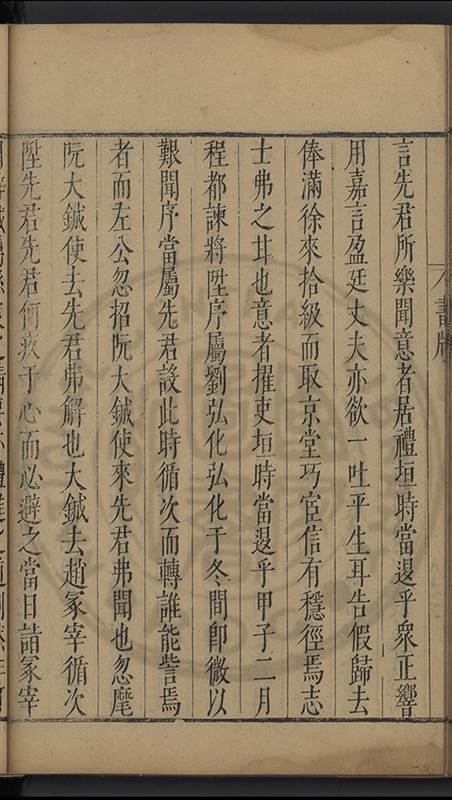 言先君所樂聞意者居禮垣時當遑乎衆正響
用嘉言盈廷丈夫亦欲一吐平生耳告假歸去
俸滿徐來拾級而取京堂巧宦信有穩徑焉志
士弗之甘也意者擢吏垣時當遑乎甲子二月
程都諫將陞序屬劉弘化弘化于冬間卽微以
艱聞序當屬先君設此時循次而轉誰能訾焉
者而左公忽招阮大鋮使來先君弗聞也忽麾
阮大鋮使去先君弗解也大鋮去趙冢宰循次
陞先君先君何疚于心而必避之當日諸冢宰